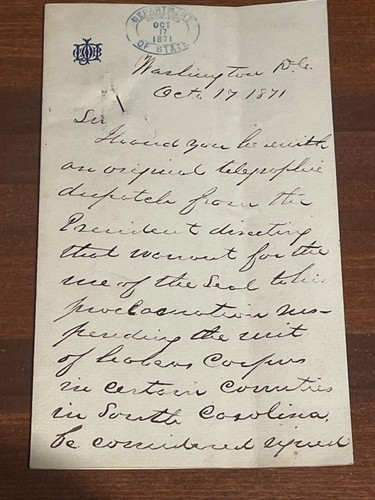 DEPARTMENT
OCT
17
1871
OF STATE
Washington D.C.
Oct. 17 1871
Sir
I hand you herewith
an original telegraphic
dispatch from the
President directing
that warrant for the
use of the Seal to his
proclamation sus-
pending the writ
of habeas Corpus
in certain Counties
in South Carolina,
be considered signed